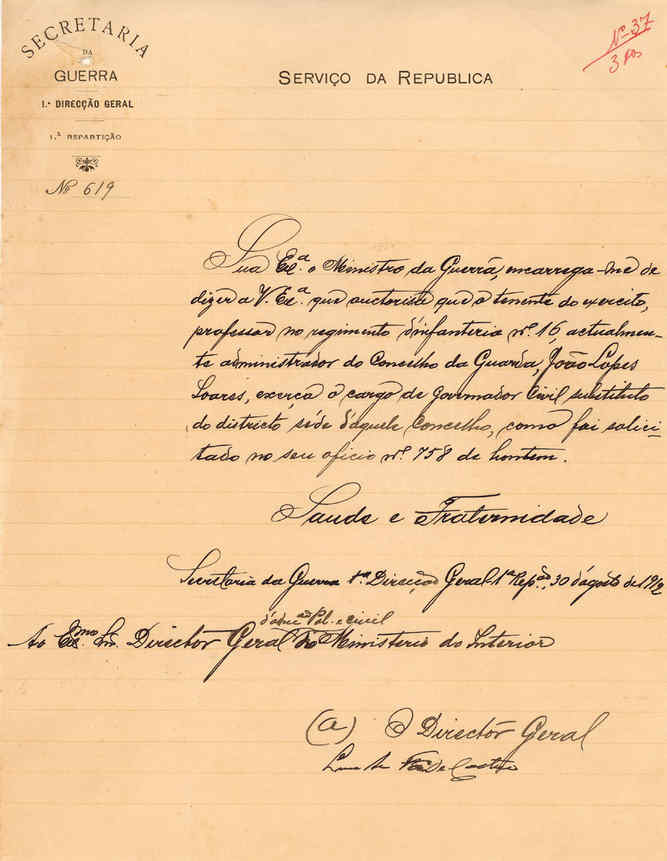 SECRETARIA
DA
GUERRA
1.ª DIRECÇÃO GERAL
1.ª REPARTIÇÃO
Nº 619
SERVIÇO DA REPUBLICA
Nº 37
3
Sua Ex.ª o Ministro da Guerra, encarrega-me de
dizer a V. Ex.ª que auctorisa, que o tenente do exercito,
professor no regimento d'infanteria nº. 16, actualmen-
te administrador do Concelho da Guarda, João Lopes
Soares, exerça o cargo de Governador Civil substituto
do districto séde d'aquele Concelho, como foi solici-
tado no seu oficio nº. 758 de hontem.
Saude e Fraternidade
Secretaria da Guerra 1ª Direcção Geral 1ª Repão, 30 d'agosto de 1912
d'admão Pol. e civil
Ao Exmo. Sr. Director Geral do Ministerio do Interior
(a) O Director Geral
de Castro